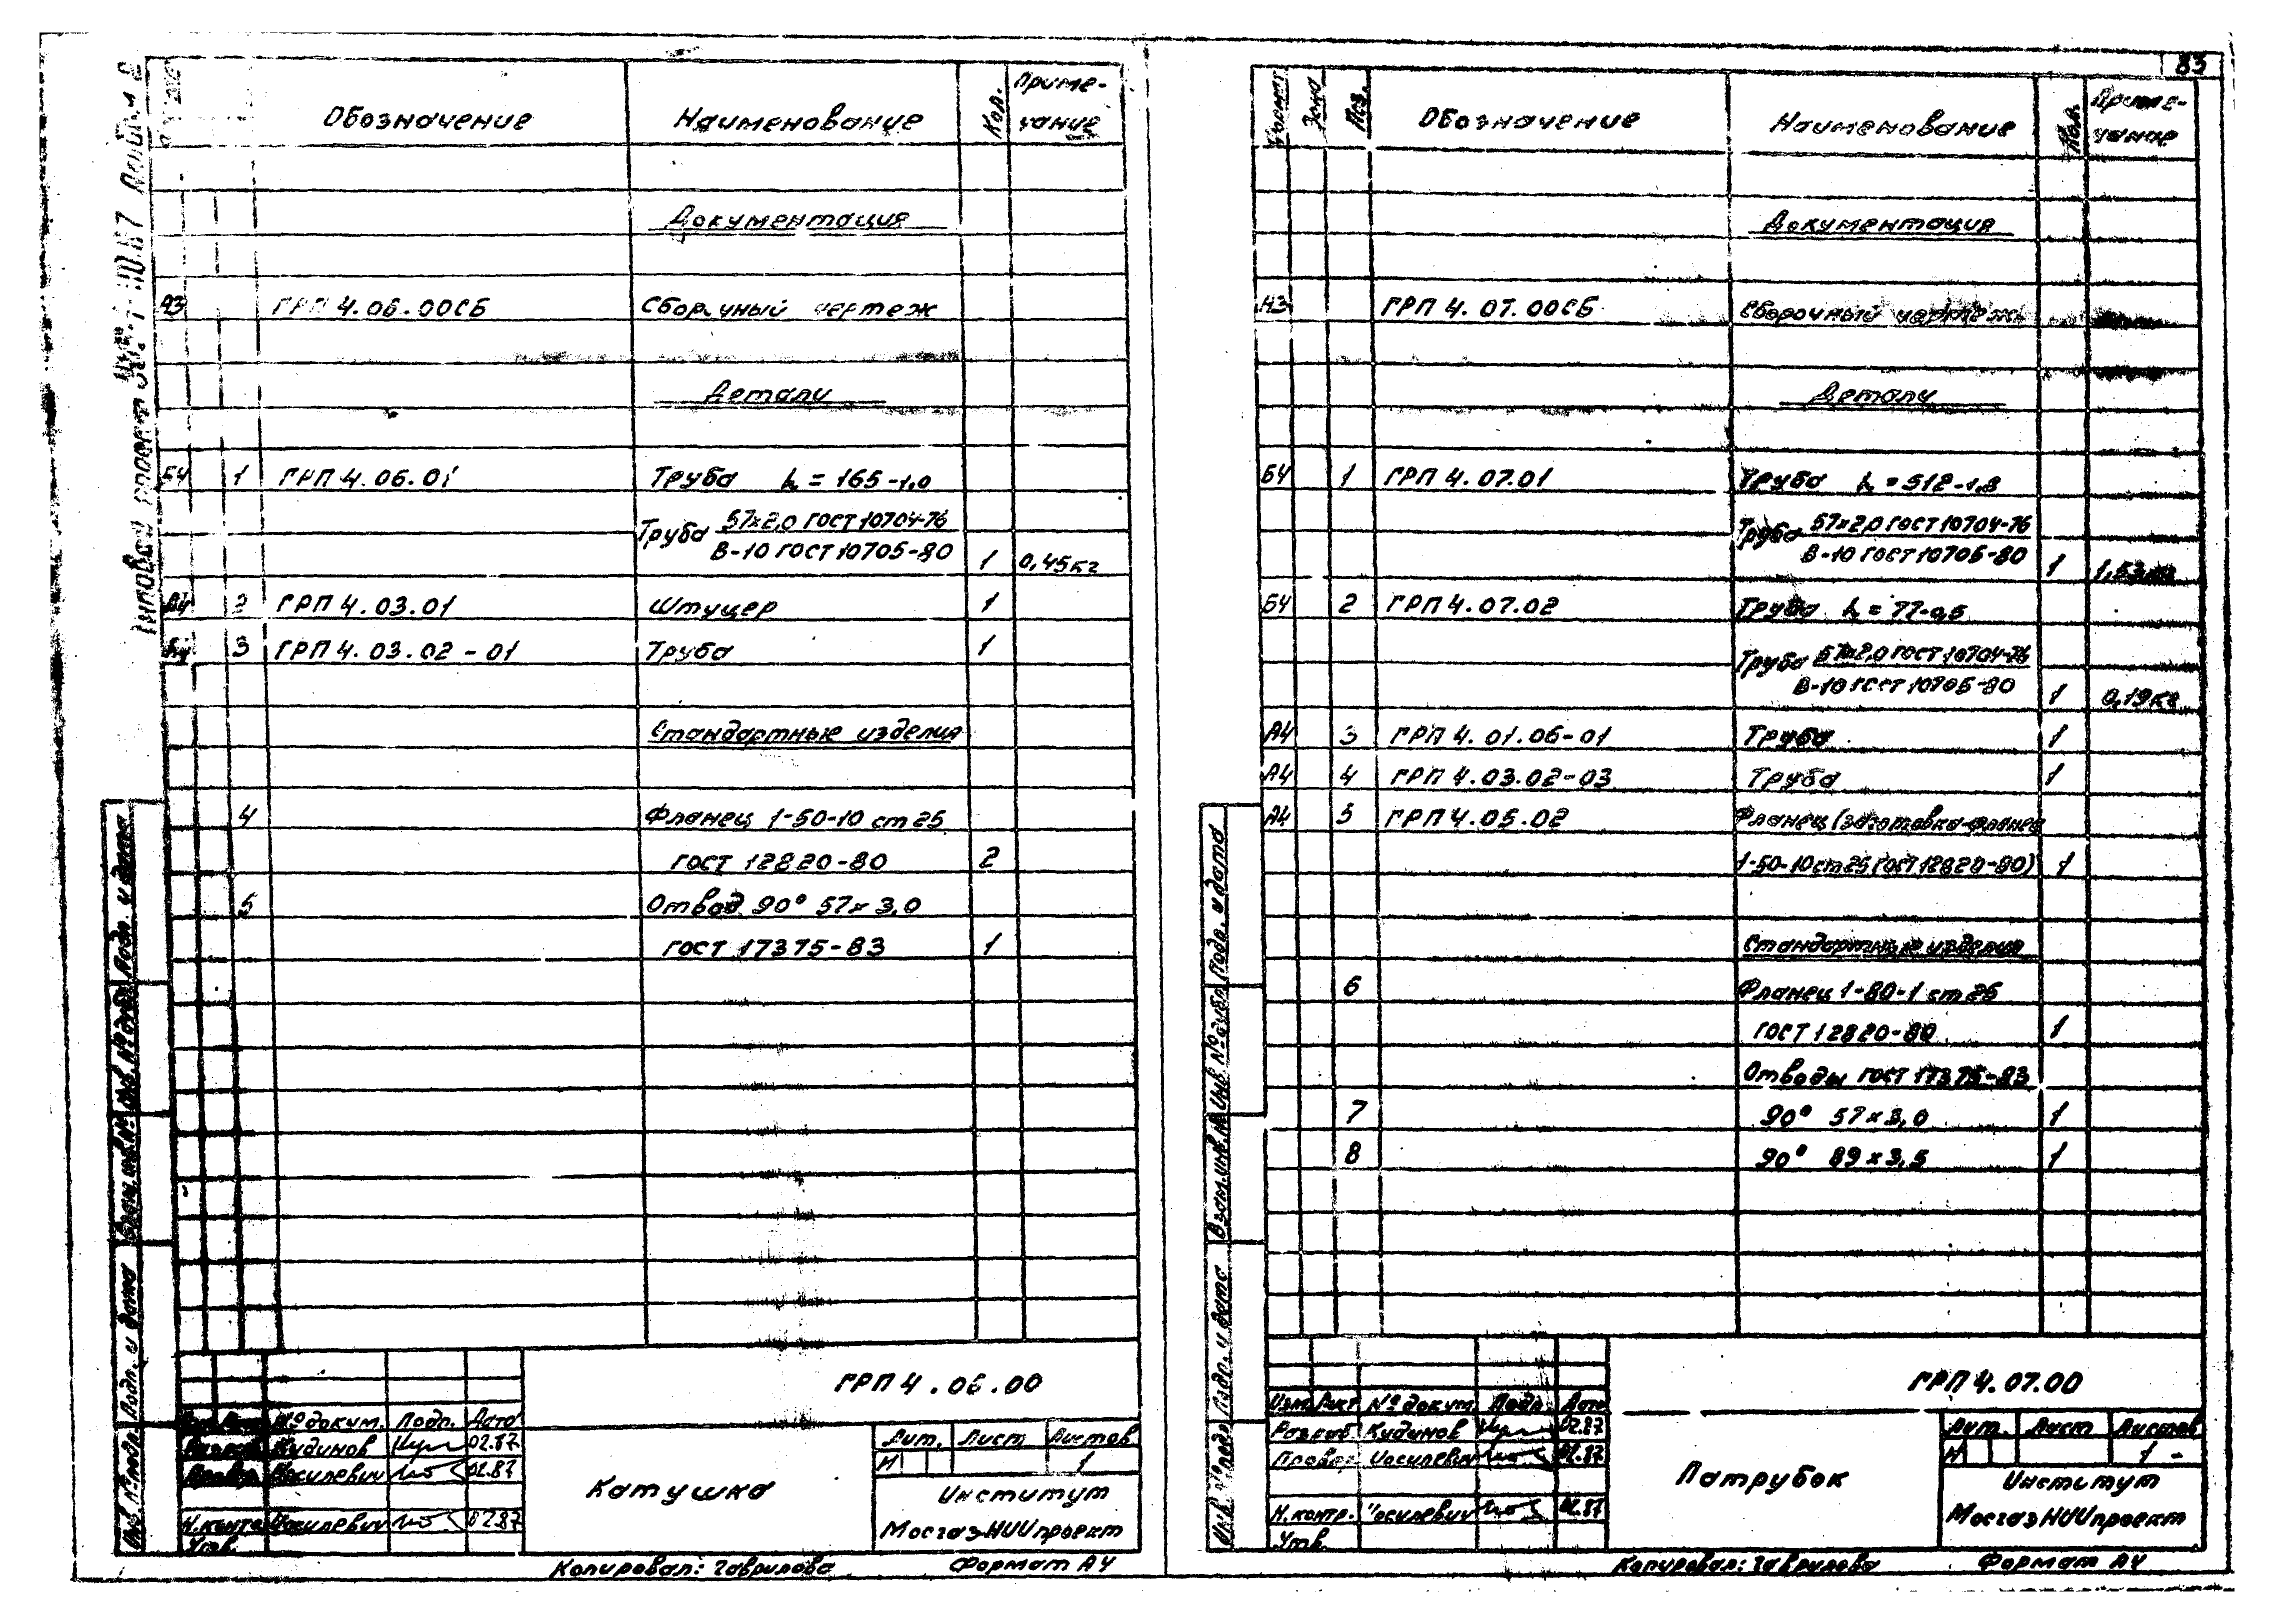 83
Обозначение Наименование Кол. Приме-
чание
Документация
А3 ГРП 4.06.00СБ Сборочный чертеж
Детали
БЧ 1 ГРП 4.06.01 Труба L = 165-1,0
Труба 57х2,0 ГОСТ 10704-76
В-10 ГОСТ 10705-80 1 0,45кг
А4 2 ГРП 4.03.01 Штуцер 1
А4 3 ГРП 4.03.02-01 Труба 1
Стандартные изделия
4 Фланец 1-50-10 ст 25
ГОСТ 12820-80 2
5 Отвод 90° 57х3,0
ГОСТ 17375-83 1
Типовой проект
Альбом 2
Инв.№подл. Подп. и дата Взам.инв.№ Инв.№дубл. Подп. и дата
ГРП 4.06.00
№ докум. Подп. Дата
Разраб. Кудинов 02.87
Провер. Иосилевич 02.87
Н.контр. Иосилевич 02.87
Утв.
Катушка
Лит. Лист Листов
И 1
Институт
МосгазНИИпроект
Копировал: Гаврилова Формат А4
Формат Зона Поз. Обозначение Наименование Кол. Приме-
чание
Документация
А3 ГРП 4.07.00СБ Сборочный чертеж
Детали
БЧ 1 ГРП 4.07.01 Труба L = 512-1,8
Труба 57х2,0 ГОСТ 10704-76
В-10 ГОСТ 10705-80 1 1,53кг
БЧ 2 ГРП 4.07.02 Труба L = 77-0,5
Труба 57х2,0 ГОСТ 10704-76
В-10 ГОСТ 10705-80 1 0,19кг
А4 3 ГРП 4.01.06-01 Труба 1
А4 4 ГРП 4.03.02-03 Труба 1
А4 5 ГРП 4.05.02 Фланец (заготовка-фланец
1-50-10 ст 25 ГОСТ 12820-80) 1
Стандартные изделия
6 Фланец 1-80-1 ст 25
ГОСТ 12820-80 1
Отводы ГОСТ 17375-83
7 90° 57х3,0 1
8 90° 89х3,5 1
Инв.№подл. Подп. и дата Взам.инв.№ Инв.№дубл. Подп. и дата
ГРП 4.07.00
Изм. Лист № докум. Подп. Дата
Разраб. Кудинов 02.87
Провер. Иосилевич 02.87
Н.контр. Иосилевич 02.87
Утв.
Патрубок
Лит. Лист Листов
И 1
Институт
МосгазНИИпроект
Копировал: Гаврилова Формат А4